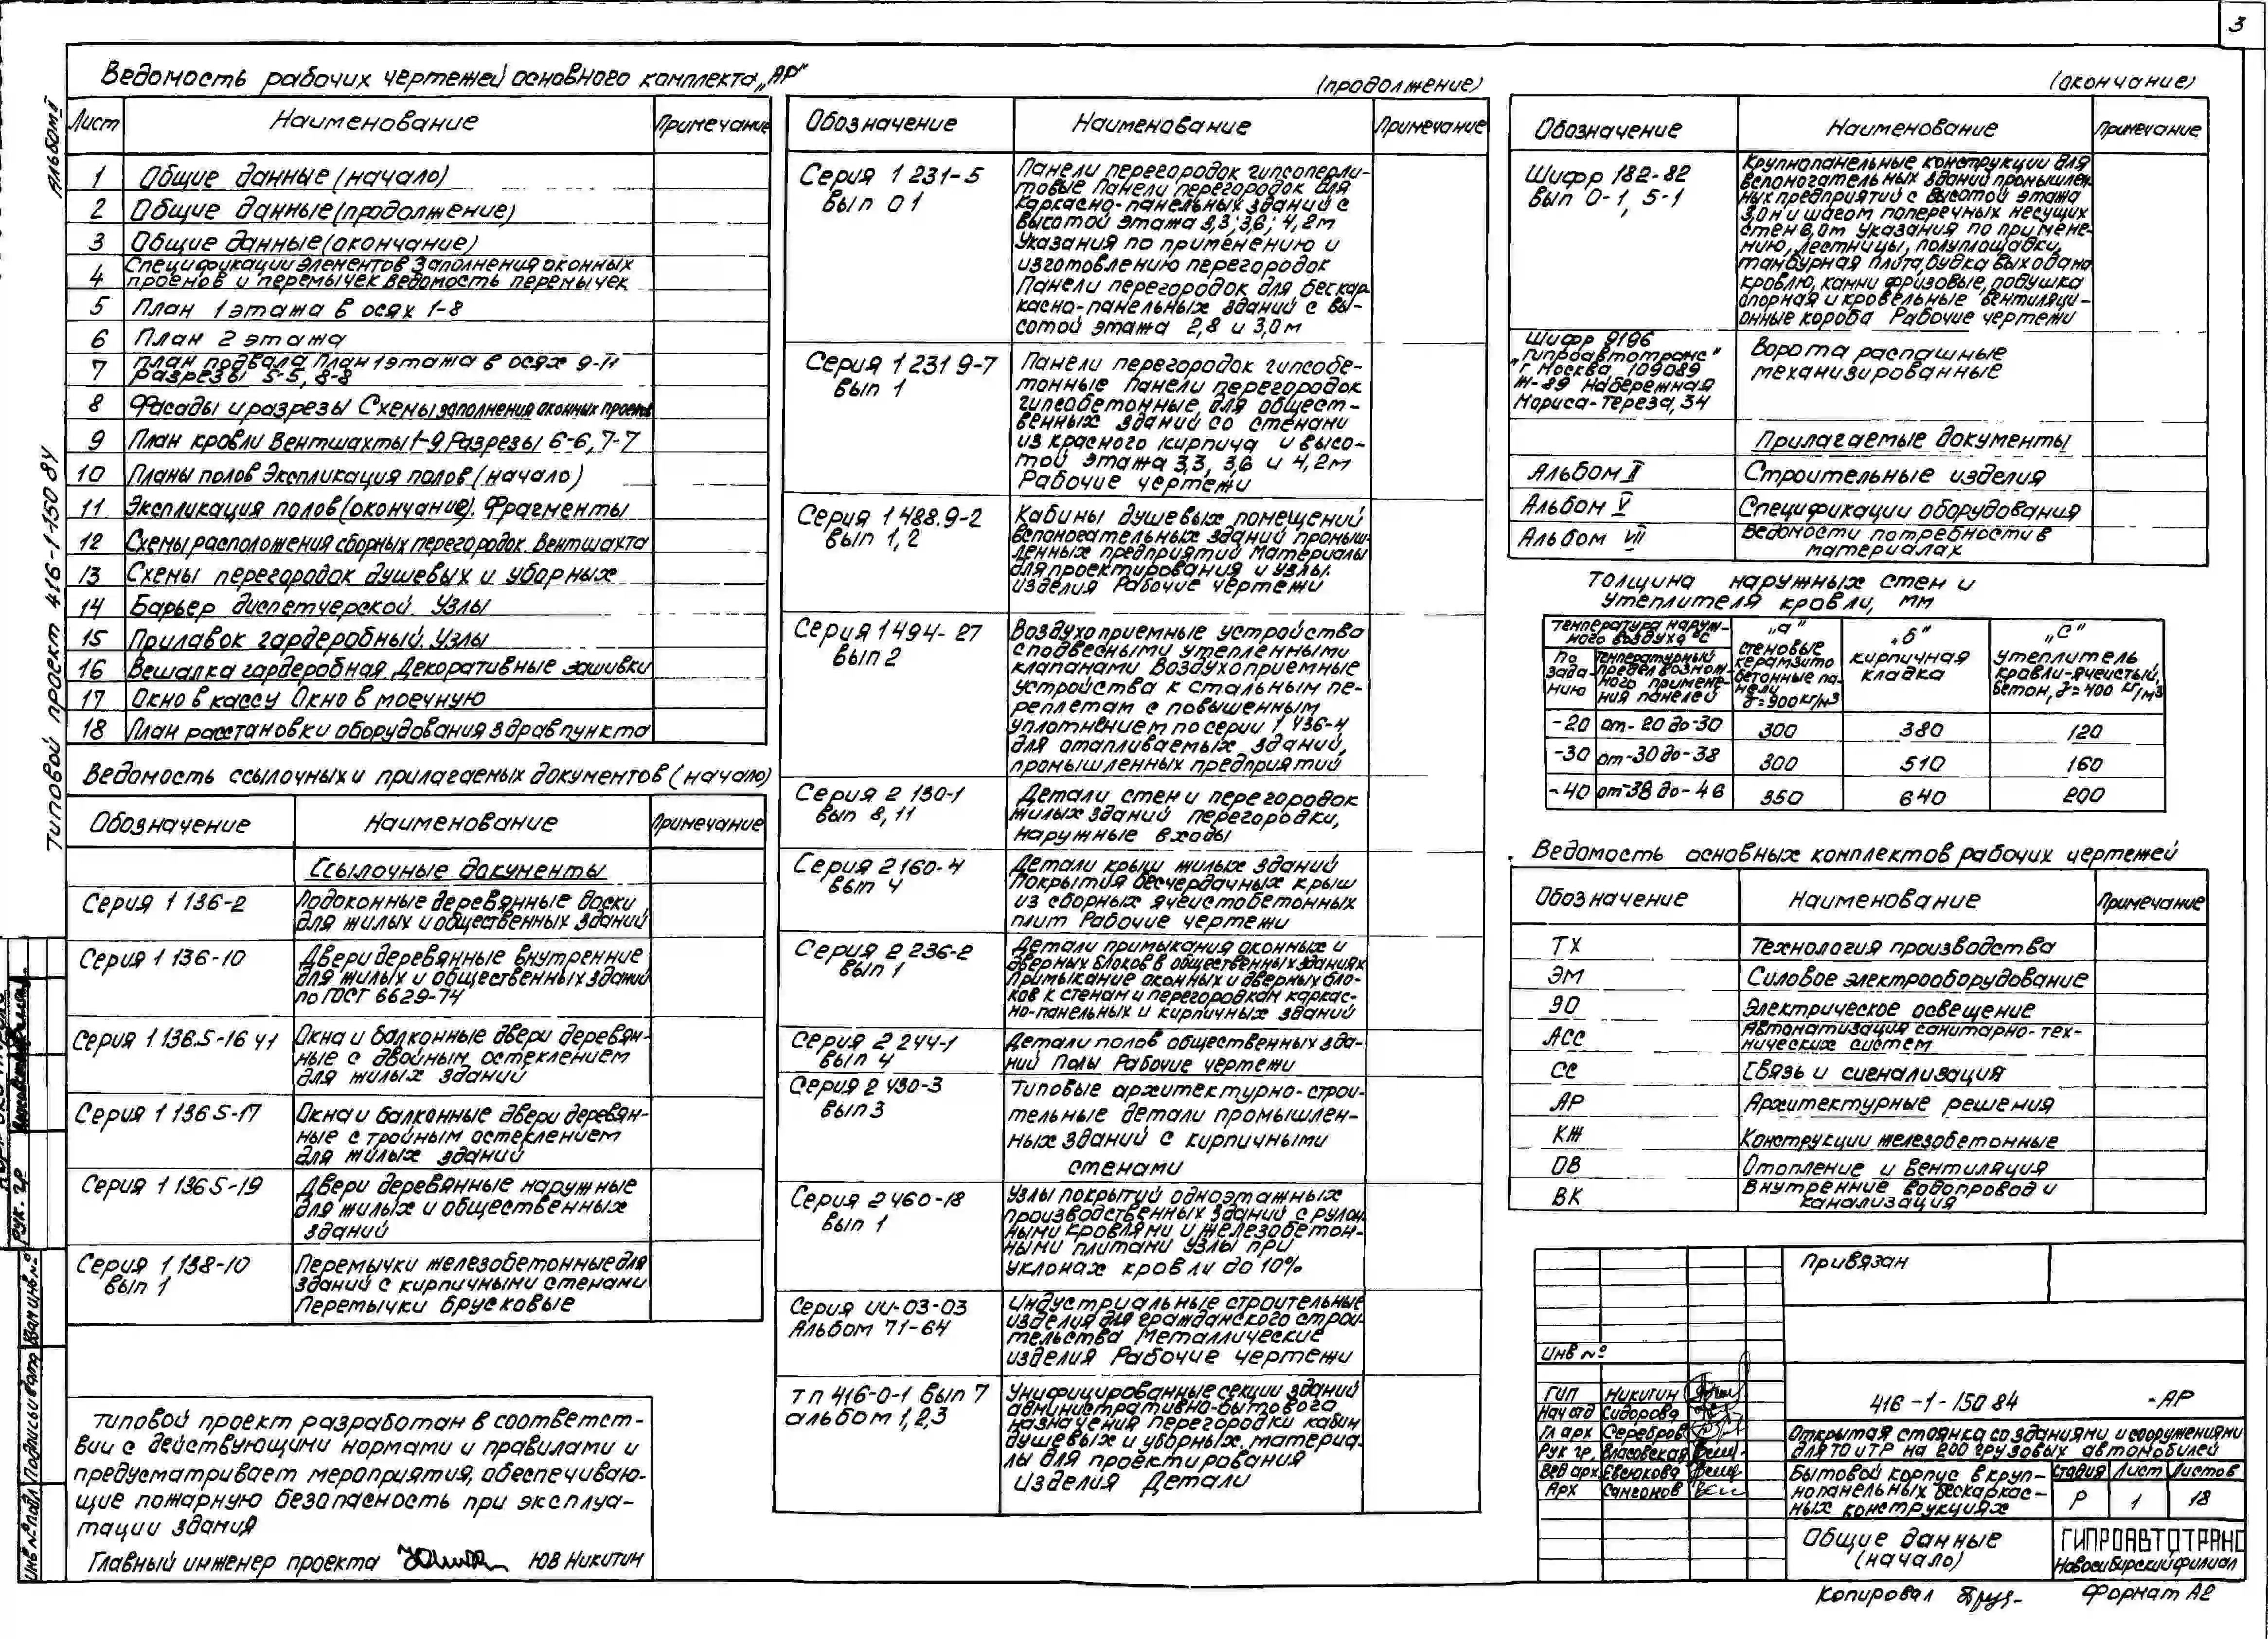 3
Альбом I
Типовой проект 416-1-150 84
Ведомость рабочих чертежей основного комплекта „АР"
Лист Наименование Примечание
1 Общие данные (начало)
2 Общие данные (продолжение)
3 Общие данные (окончание)
4 Спецификации элементов заполнения оконных
проемов и перемычек ведомость перемычек
5 План 1 этажа в осях 1-8
6 План 2 этажа
7 План подвала План 1 этажа в осях 9-11
Разрезы 5-5, 8-8
8 Фасады и разрезы Схемы заполнения оконных проемов
9 План кровли Вентшахты 1-9 Разрезы 6-6, 7-7
10 Планы полов Экспликация полов (начало)
11 Экспликация полов (окончание). Фрагменты
12 Схемы расположения сборных перегородок. Вентшахта
13 Схемы перегородок душевых и уборных
14 Барьер диспетчерской. Узлы
15 Прилавок гардеробный. Узлы
16 Вешалка гардеробная Декоративные зашивки
17 Окно в кассу Окно в моечную
18 План расстановки оборудования здравпункта
Ведомость ссылочных и прилагаемых документов (начало)
Обозначение Наименование Примечание
Ссылочные документы
Серия 1 136-2 Подоконные деревянные доски
для жилых и общественных зданий
Серия 1 136-10 Двери деревянные внутренние
для жилых и общественных зданий
по ГОСТ 6629-74
Серия 1 136.5-16 ч1 Окна и балконные двери деревян-
ные с двойным остеклением
для жилых зданий
Серия 1 136 5-17 Окна и балконные двери деревян-
ные с тройным остеклением
для жилых зданий
Серия 1 136 5-19 Двери деревянные наружные
для жилых и общественных
зданий
Серия 1 138-10 Перемычки железобетонные для
вып 1 зданий с кирпичными стенами
Перемычки брусковые
Типовой проект разработан в соответст-
вии с действующими нормами и правилами и
предусматривает мероприятия, обеспечиваю-
щие пожарную безопасность при эксплуа-
тации здания
Главный инженер проекта ЮВ Никитин
(продолжение)
Обозначение Наименование Примечание
Серия 1 231-5 Панели перегородок гипсоперли-
вып 0 1 товые Панели перегородок для
каркасно-панельных зданий с
высотой этажа 3,3; 3,6; 4,2м
Указания по применению и
изготовлению перегородок
Панели перегородок для бескар-
касно-панельных зданий с вы-
сотой этажа 2,8 и 3,0м
Серия 1 231 9-7 Панели перегородок гипсобе-
вып 1 тонные Панели перегородок
гипсобетонные для общест-
венных зданий со стенами
из красного кирпича и высо-
той этажа 3,3, 3,6 и 4,2м
Рабочие чертежи
Серия 1 488.9-2 Кабины душевых помещений
вып 1, 2 вспомогательных зданий промыш-
ленных предприятий Материалы
для проектирования и узлы.
изделия Рабочие чертежи
Серия 1 494-27 Воздухоприемные устройства
вып 2 с подвесными утепленными
клапанами Воздухоприемные
устройства к стальным пе-
реплетам с повышенным
уплотнением по серии 1 436-4
для отапливаемых зданий,
промышленных предприятий
Серия 2 130-1 Детали стен и перегородок
вып 8, 11 жилых зданий перегородки,
наружные входы
Серия 2 160-4 Детали крыш жилых зданий
вып 4 Покрытия бесчердачных крыш
из сборных ячеистобетонных
плит Рабочие чертежи
Серия 2 236-2 Детали примыкания оконных и
вып 1 дверных блоков в общественных зданиях
Примыкание оконных и дверных бло-
ков к стенам и перегородкам каркас-
но-панельных и кирпичных зданий
Серия 2 244-1 Детали полов общественных зда-
вып 4 ний Полы Рабочие чертежи
Серия 2 430-3 Типовые архитектурно-строи-
вып 3 тельные детали промышлен-
ных зданий с кирпичными
стенами
Серия 2 460-18 Узлы покрытий одноэтажных
вып 1 производственных зданий с рулон-
ными кровлями и железобетон-
ными плитами Узлы при
уклонах кровли до 10%
Серия ИИ-03-03 Индустриальные строительные
Альбом 71-64 изделия для гражданского строи-
тельства Металлические
изделия Рабочие чертежи
тп 416-0-1 вып 7 Унифицированные секции зданий
альбом 1,2,3 административно-бытового
назначения перегородки кабин
душевых и уборных, материа-
лы для проектирования
Изделия Детали
(окончание)
Обозначение Наименование Примечание
Шифр 182-82 Крупнопанельные конструкции для
вып 0-1, 5-1 вспомогательных зданий промышлен-
ных предприятий с высотой этажа
3,0м и шагом поперечных несущих
стен 6,0м Указания по примене-
нию, лестницы, полуплощадки,
тамбурная плита, будка выхода на
кровлю, камни фризовые, подушка
опорная и кровельные вентиляци-
онные короба Рабочие чертежи
Шифр 9196 Ворота распашные
„Гипроавтотранс" механизированные
г Москва 109089
Ж-89 Набережная
Мориса-Тереза, 34
Прилагаемые документы
Альбом II Строительные изделия
Альбом V Спецификации оборудования
Альбом VII Ведомости потребности в
материалах
Толщина наружных стен и
утеплителя кровли, мм
Температура наруж-
ного воздуха °С
По
зада-
нию
Температурный
предел возмож-
ного примене-
ния панелей
„а"
стеновые
керамзито
бетонные па-
нели
γ=900 кг/м3
„б"
кирпичная
кладка
„С"
утеплитель
кровли-ячеистый
бетон, γ=400 кг/м3
-20 от-20 до-30 300 380 120
-30 от-30 до-38 300 510 160
-40 от-38 до-46 350 640 200
Ведомость основных комплектов рабочих чертежей
Обозначение Наименование Примечание
ТХ Технология производства
ЭМ Силовое электрооборудование
ЭО Электрическое освещение
АСС Автоматизация санитарно-тех-
нических систем
СС Связь и сигнализация
АР Архитектурные решения
КЖ Конструкции железобетонные
ОВ Отопление и вентиляция
ВК Внутренние водопровод и
канализация
Привязан
Инв №
ГИП Никитин
Нач отд Сидорова
Гл арх Серебров
Рук гр. Власовская
Вед арх Евсюкова
Арх Самсонов
416-1-150 84 -АР
Открытая стоянка со зданиями и сооружениями
для ТО и ТР на 200 грузовых автомобилей
Бытовой корпус в круп-
нопанельных бескаркас-
ных конструкциях
Стадия Лист Листов
Р 1 18
Общие данные
(начало)
ГИПРОАВТОТРАНС
Новосибирский филиал
Копировал
Формат А2
Рук. гр
Инв № подл Подпись и дата Взам инв №